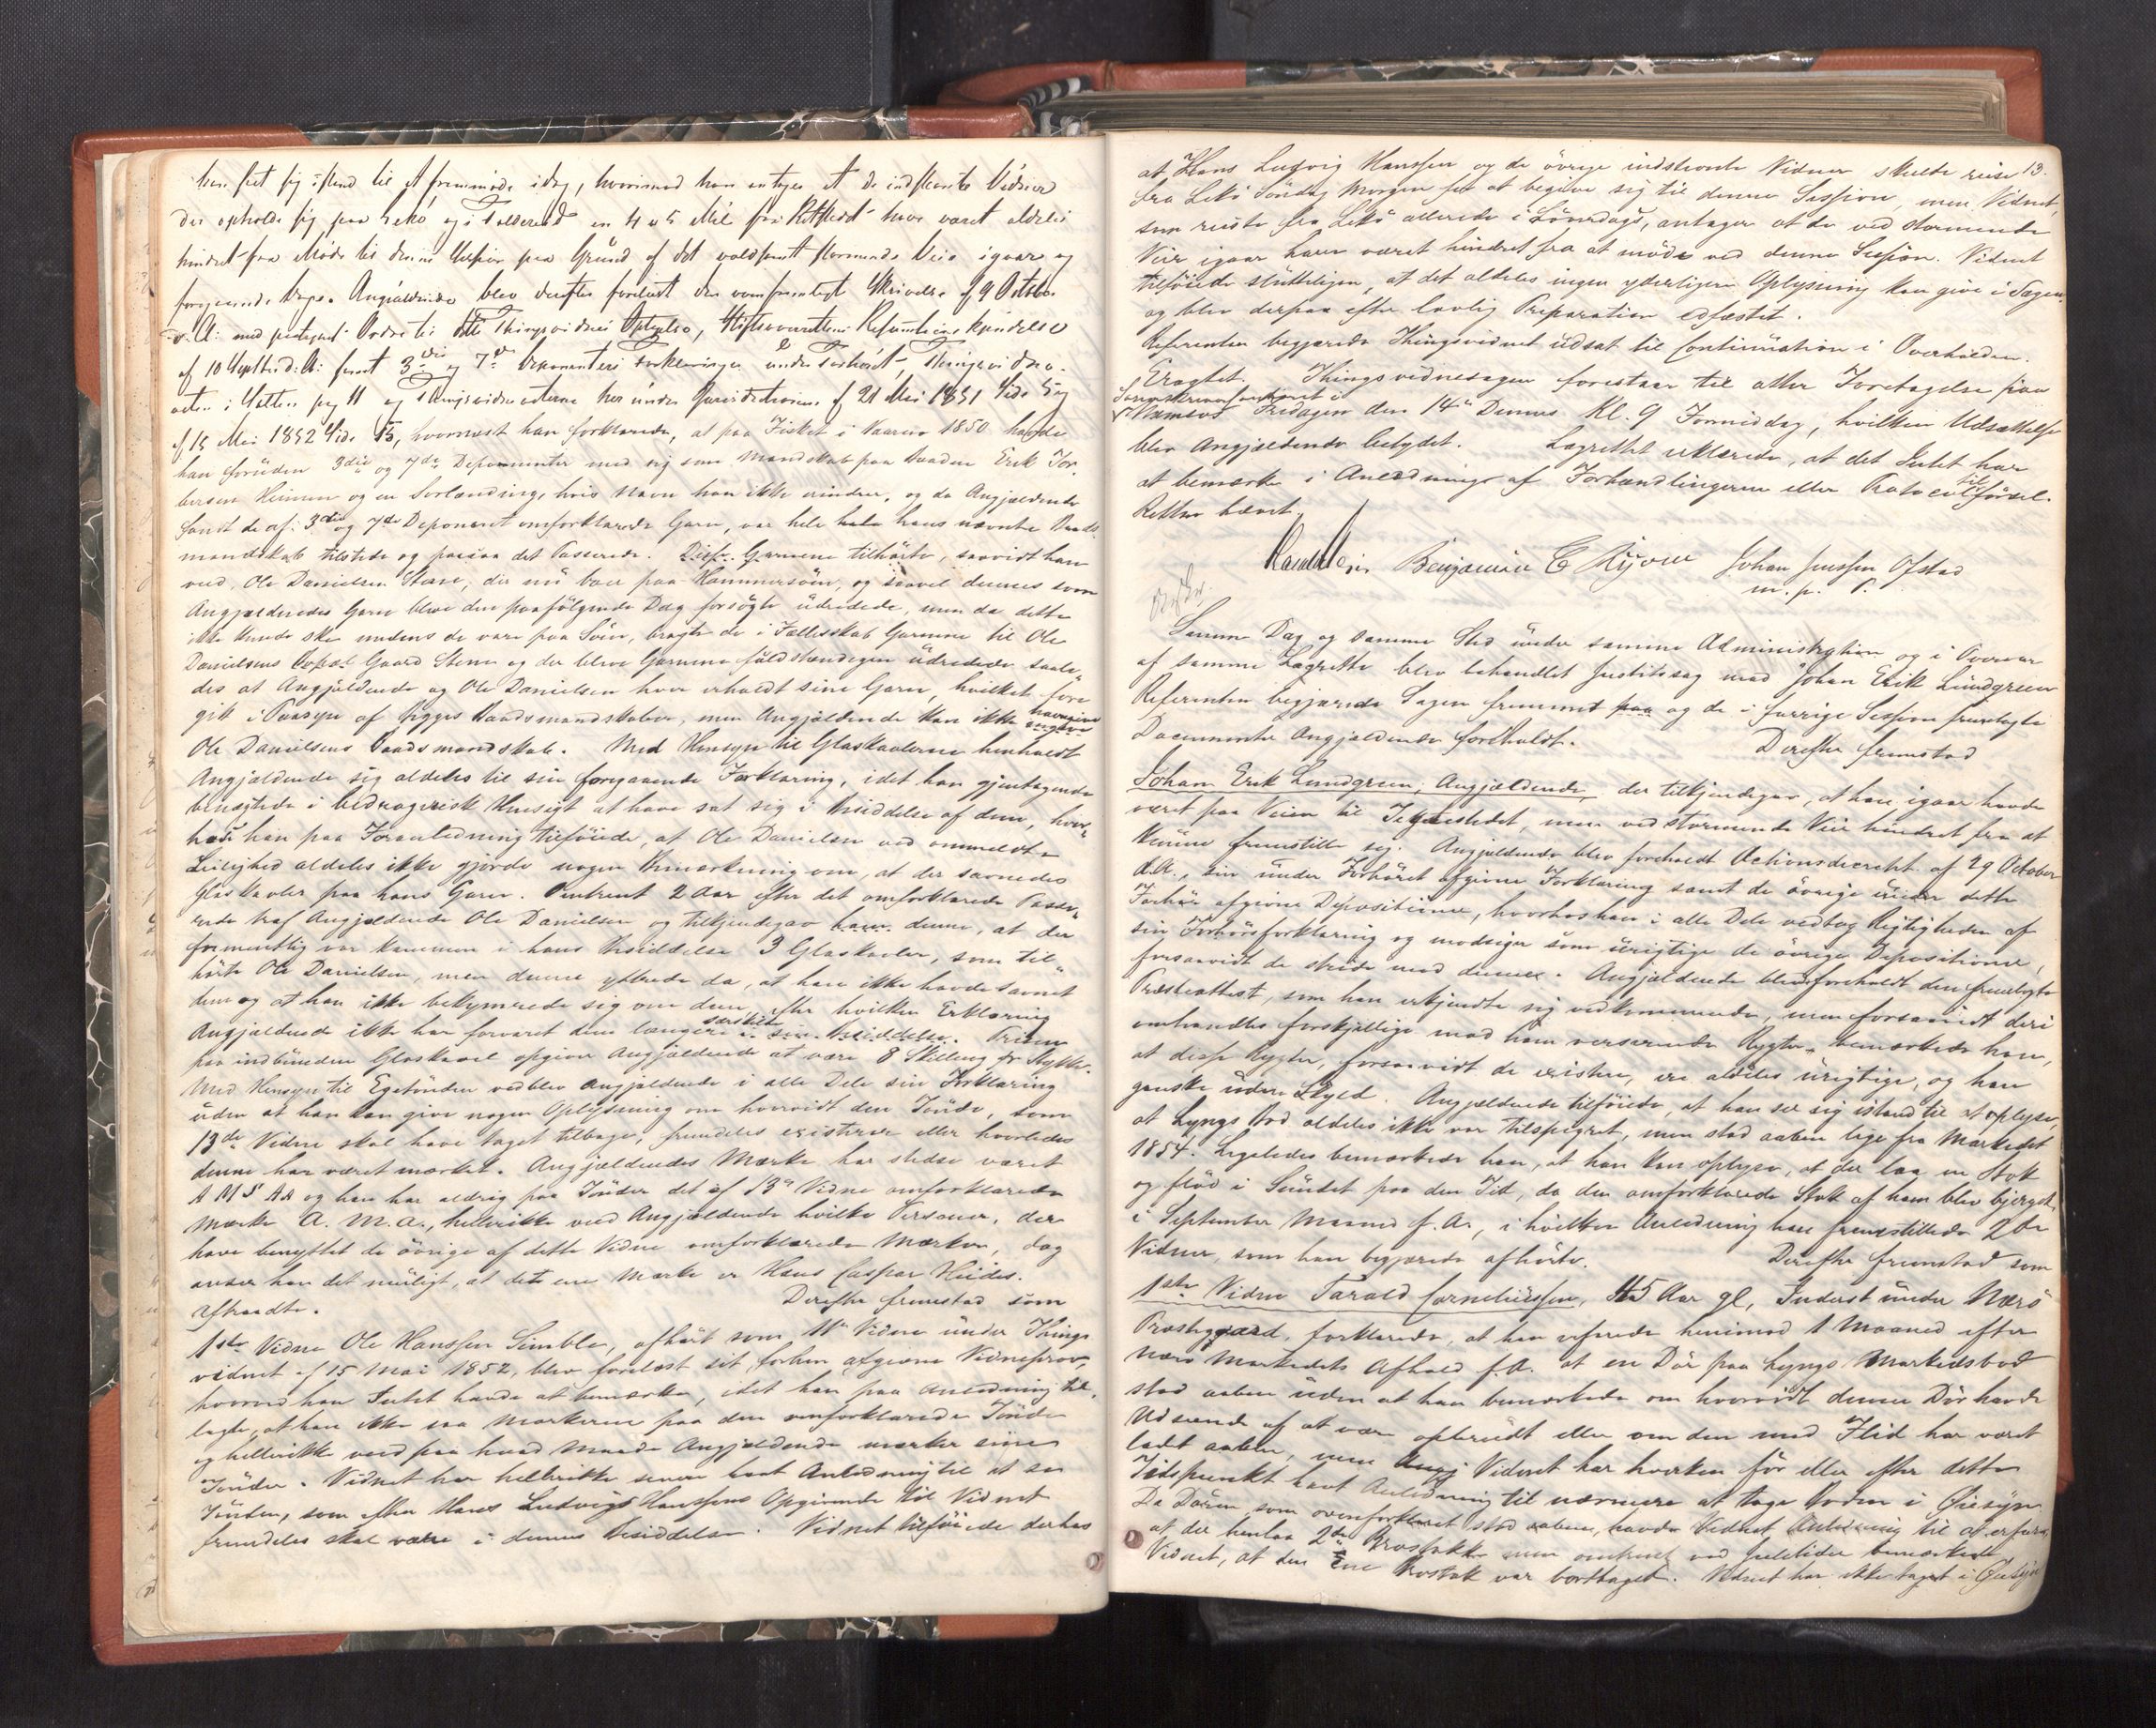 han seet sig istand til at fremmøde idag, hvorimod han antager at de indstevnte Vidner
der opholde sig paa Lekö og i Solderend en 4 a 5 Mil fra Rettsted har været aldeles
hindret fra Møde til denne Session paa Grund af det voldsomt stormende Veir igaar og
foregaaende Dage. Angjældende blev derefter forelæst den Skrivelse af 9 October
d. A. med Ordre til dette Thingsvidnes Optagelse, Stiftsoverrettens Kjendelse
af 10 September d. A. samt 3die og 7de Deponenters Forklaringer under Forhöret, Thingsvidne-
acten i Sagen pag 11 og Thingsvidneacterne her under Jurisdictionen af 21 Mai 1851 Side 5 og
af 15 Mai 1852 Side 15, hvornæst han forklarede, at paa Fisket i Vaaren 1850 havde
han foruden 3die og 7de Deponenter med sig som Mandskab paa Baaden Erik Tor-
bersen Heimen og en Sørlænding, hvis Navn han ikke erindrer, og da Angjældende
fandt de af 3die og 7de Deponent omforklarede Garn, var hele hans nævnte Baads-
mandskab tilstede og paasaa det Passerede. Disse Garnene tilhörte, saavidt han
veed, Ole Danielsen Stene, der nu boer paa Hammersöen, og saavel dennes som
Angjældendes Garn bleve den paafölgende Dag forsögte udredede, men da dette
ikke kunde ske medens de vare paa Söen, bragte de i Fællesskab Garnene til Ole
Danielsens Gaard Stene og der bleve Garnene fuldstændigen udredede saale-
des at Angjældende og Ole Danielsen hver erholdt sine Garn, hvilket fore
gik i Paasyn af begges Baadsmandskaber, men Angjældende kan ikke navngive
Ole Danielsens Baadsmandskab. Med Hensyn til Glaskavlerne henholdt
Angjældende sig aldeles til sin foregaaende Forklaring, idet han gjentagende
benægtede i bedragerisk Hensigt at have sat sig i Besiddelse af dem, hvor-
hos han paa Foranledning tilföiede, at Ole Danielsen ved ommeldte
Leilighed aldeles ikke gjorde nogen Bemærkning om, at der savnedes
Glaskavler paa hans Garn. Omtrent 2 Aar efter det omforklarede Passe-
rede traf Angjældende Ole Danielsen og tilkjendegav denne, at der
formentlig var kommen i hans Besiddelse 3 Glaskavler, som til-
hörte Ole Danielsen, men denne yttrede da, at han ikke havde savnet
dem og at han ikke bekymrede sig om dem, efter hvilken Erklæring
Angjældende ikke har forvaret dem længere særskilt i sin Besiddelse. Prisen
paa indbunden Glaskavl opgiver Angjældende at være 8 Skilling pr Stykke.
Med Hensyn til Egetönden vedblev Angjældende i alle Dele sin Forklaring
uden at han kan give nogen Oplysning om hvorvidt den Tönde, som
13de Vidne skal have taget tilbage, fremdeles existerer eller hvorledes
denne har været mærket. Angjældendes Mærke har stedse været
A M S A A og han har aldrig paa Tönder det af 13de Vidne omforklarede
Mærke A. M. A., hellerikke veed Angjældende hvilke Personer, der
have benyttet de övrige af dette Vidne omforklarede Mærker, dog
anser han det muligt, at det ene Mærke er Hans Caspar Heides.
Aftraadte. Derefter fremstod som
1ste Vidne Ole Hanssen Simble, afhört som 11te Vidne under Things-
vidnet af 15 Mai 1852, blev forelæst sit forhen afgivne Vidneprov,
hvorved han Intet havde at bemærke, idet han paa Anledning til-
lagde, at han ikke saa Mærkerne paa den omforklarede Tönde
og hellerikke veed paa hvad Maade Angjældende mærker sine
Tönder. Vidnet har hellerikke senere havt Anledning til at see
Tönden, som efter Hans Ludvigs Hanssens Opgivende til Vidnet
fremdeles skal være i dennes Besiddelse. Vidnet tilföiede derhos
13.
at Hans Ludvig Hanssen og de övrige indstevnte Vidner skulde reise
fra Lekö Söndag Morgen for at begive sig til denne Session, men Vidnet,
som reiste fra Lekö allerede i Löverdags, antager at de ved stormende
Veir igaar have været hindret fra at möde ved denne Session. Vidnet
tilföiede sluttelig, at det aldeles ingen yderligere Oplysning kan give i Sagen,
og blev derpaa efter lovlig Præparation edfæstet.
Referenten begjærede Thingsvidnet udsat til Continuation i Overhalden.
Eragtet. Thingsvidnesagen forestaar til atter Foretagelse paa
Sorenskrivercontoret i
Namsos Fredagen den 14de Dennes Kl. 9 Formiddag, hvilken Udsættelse
blev Angjældende betydet. Lagrettet erklærede, at det Intet har
at bemærke i Anledning af Forhandlingerne eller Protocoltilförsel.
Retten hævet.
Benjamin C Ryjove Johan Jenssen Ofstad
m. p. P.
Samme Dag og samme Sted under samme Administration og i Overvær
af samme Lagrette blev behandlet Justitssag mod Johan Erik Lundgreen
Referenten begjærede Sagen fremmet paa og de i forrige Session fremlagte
Documenter Angjældende foreholdt. Derefter fremstod
Johan Erik Lundgreen, Angjældende, der tilkjendegav, at han igaar havde
været paa Veien til Tegnestedet, men ved stormende Veir hindret fra at
kunne fremstille sig. Angjældende blev foreholdt Actionsdecretet af 29 October
d. A., sin under Forhöret afgivne Forklaring samt de övrige under dette
Forhör afgivne Depositioner, hvorhos han i alle Dele vedtog Rigtigheden af
sin Forhörsforklaring og modsiger som urigtige de övrige Depositioner,
forsaavidt de stride mod denne. Angjældende blev foreholdt den fremlagte
Præsteattest, som han erkjendte sig vedkommende, men forsaavidt deri
omhandles forskjellige mod ham verserende Rygter, bemærkede han,
at disse Rygter, forsaavidt de existere, ere aldeles urigtige, og han
ganske uden Skyld. Angjældende tilföiede, at han seer sig istand til at oplyse,
at Lyngs Bod aldeles ikke var tilspigret, men stod aaben lige fra Markedet
1854. Ligeledes bemærkede han, at han kan oplyse, at der laa en Stok
og flöd i Sundet paa den Tid, da den omforklarede Stok af ham blev bjerget
i September Maaned f. A., i hvilken Anledning han fremstillede 2de
Vidner, som han begjærede afhörte. Derefter fremstod som
1ste Vidne Tarald Corneliussen, 45 Aar gl, Inderst under Nærö
Præstegaard, forklarede, at han erfarede henimod 1 Maaned efter
Nærö Markedets Afhold f. A. at en Dör paa Lyngs Markedsbod
stod aaben uden at han bemærkede om hvorvidt denne Dör havde
Udseende af at være opbrudt eller om den med Flid har været
ladt aaben, men Vidnet har hverken för eller efter dette
Tidspunkt havt Anledning til nærmere at tage Boden i Öiesyn.
Da Dören som ovenforklaret stod aaben, havde Vidnet Anledning til at erfare,
at der henlaa 2de men omtrent ved Juletider bemærkede
Vidnet, at den Ene var borttaget. Vidnet har ikke taget i Öiesyn